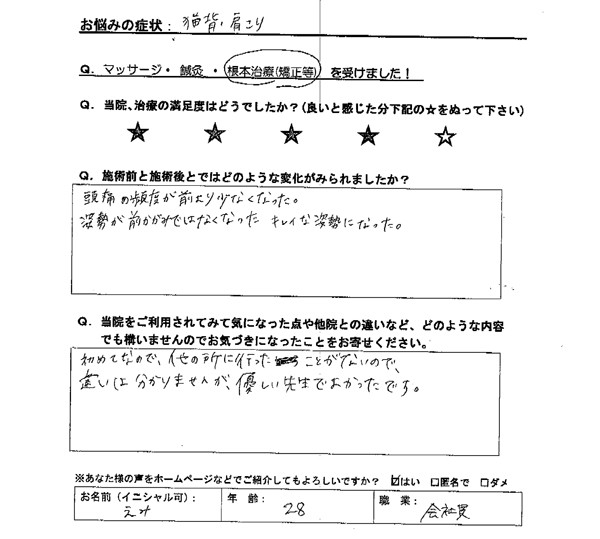 お悩みの症状：猫背、肩こり
Q．マッサージ・鍼灸・根本治療(矯正等)を受けました！
Q．当院、治療の満足度はどうでしたか？(良いと感じた分下記の☆をぬって下さい)
★ ★ ★ ★ ☆
Q．施術前と施術後とではどのような変化がみられましたか？
頭痛の頻度が前より少なくなった。
姿勢が前かがみではなくなった キレイな姿勢になった。
Q．当院をご利用されてみて気になった点や他院との違いなど、どのような内容
でも構いませんのでお気づきになったことをお寄せください。
初めてなので、他の所に行ったことがないので、
違いは分かりませんが、優しい先生でよかったです。
※あなた様の声をホームページなどでご紹介してもよろしいですか？ ☑はい □匿名で □ダメ
お名前（イニシャル可）： 年 齢： 職 業：
えみ 28 会社員